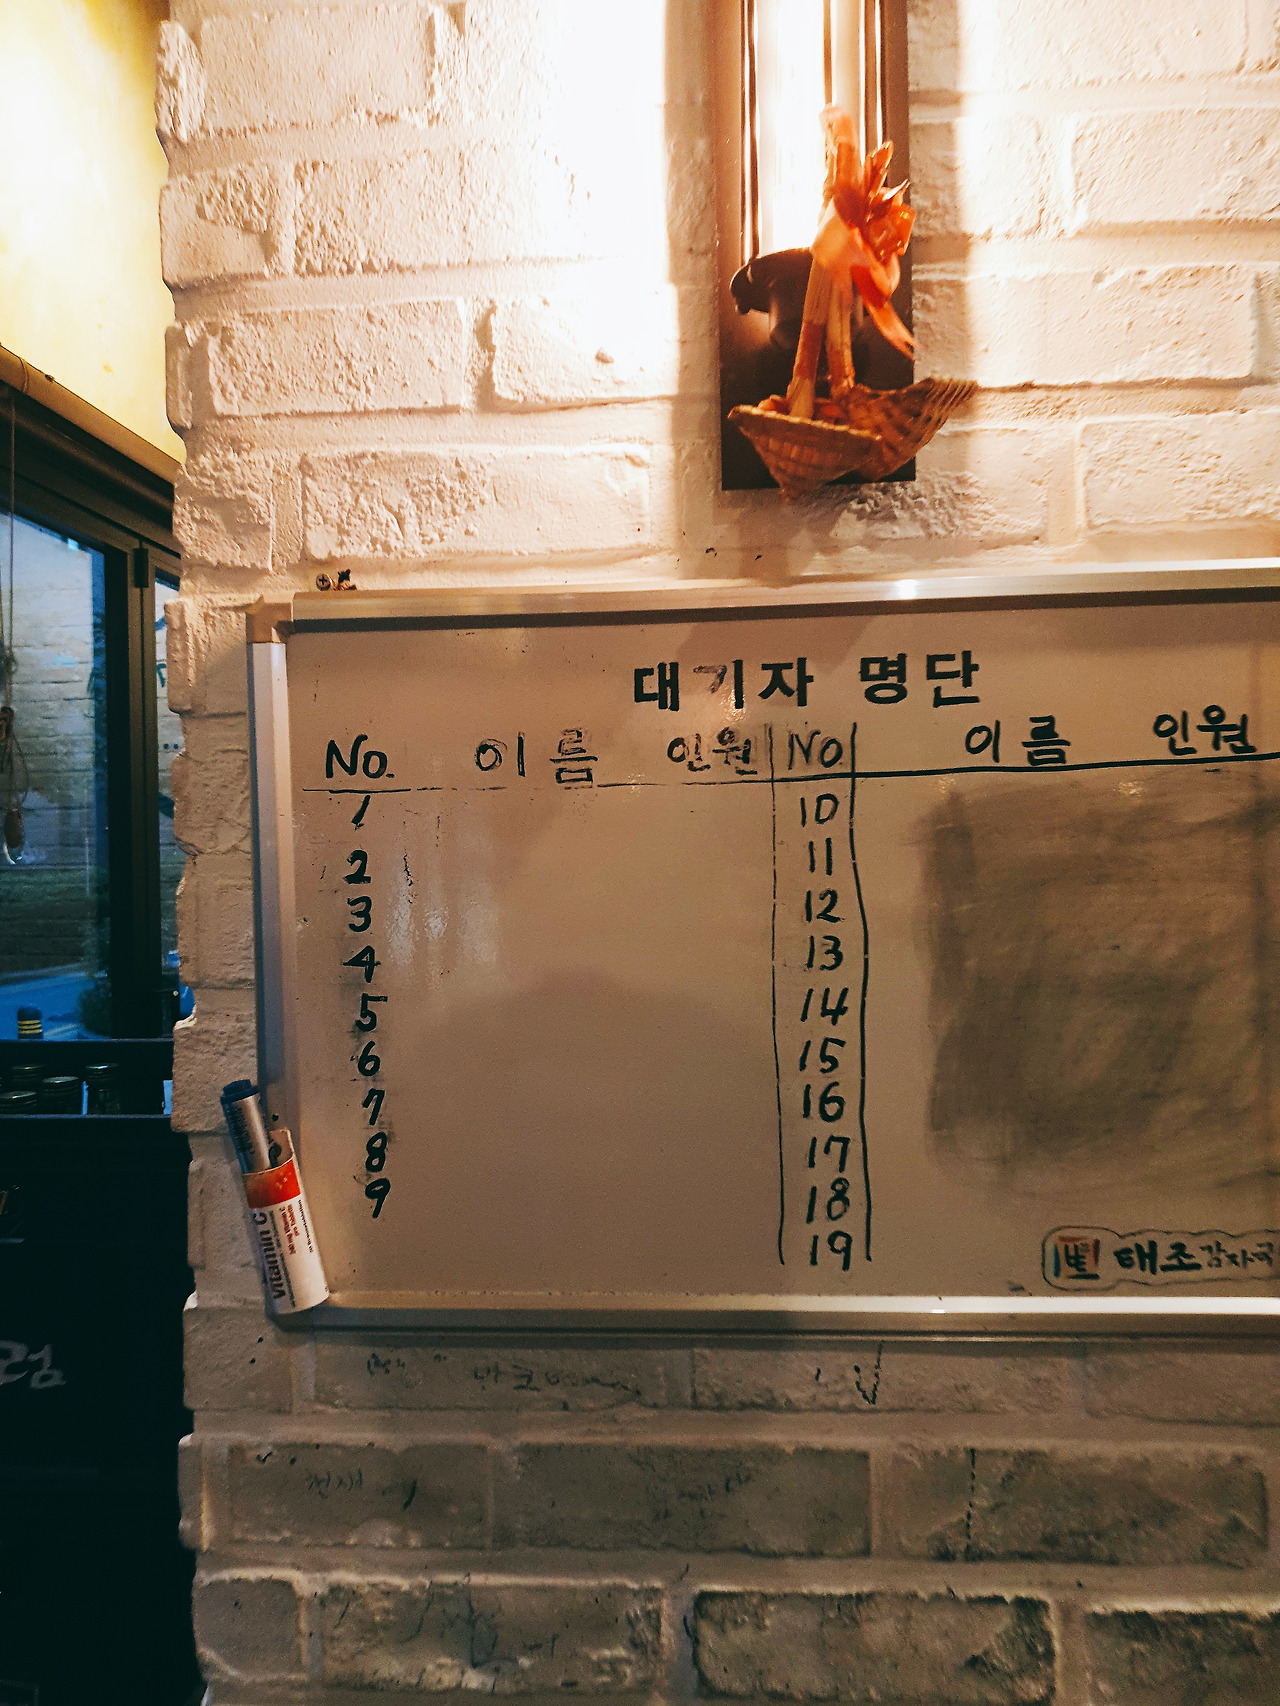 대기자 명단
No. 이름 인원 No. 이름 인원
1 10
2 11
3 12
4 13
5 14
6 15
7 16
8 17
9 18
19
태조감자국
vitamin C
럼